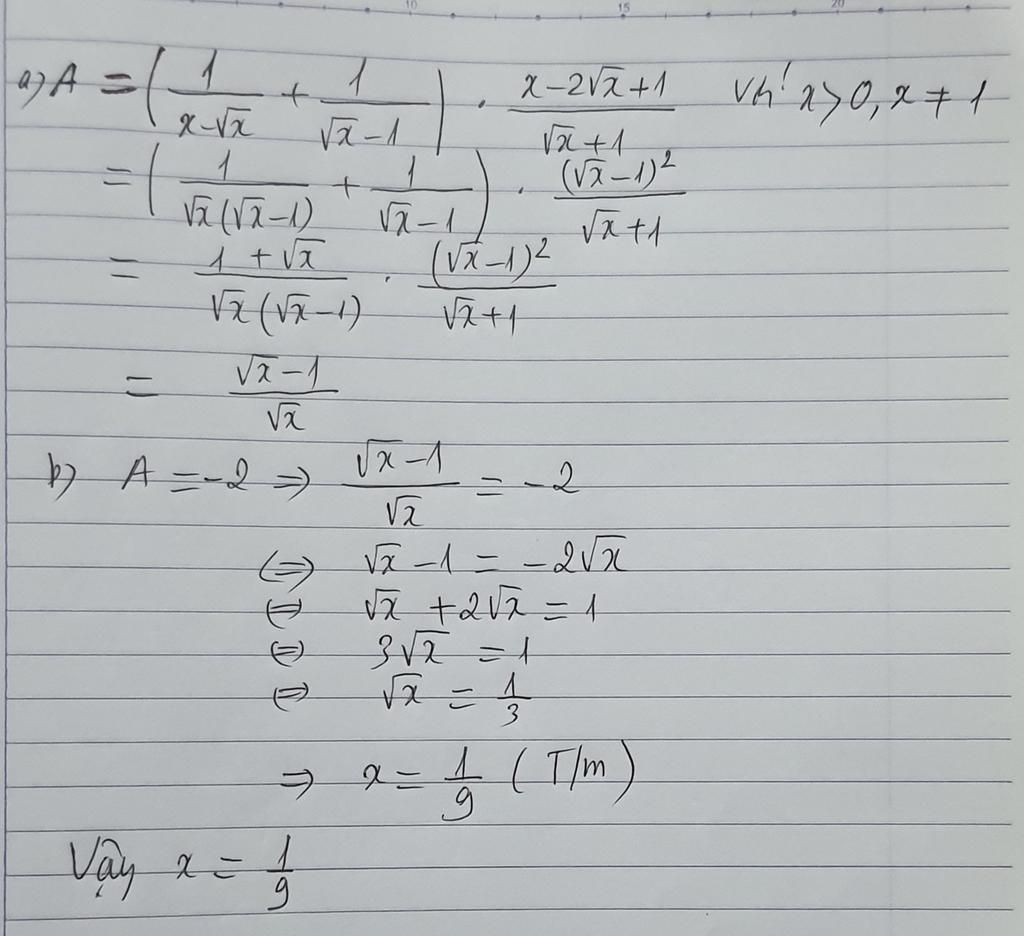 10 15 20
a) A = (1/(x-√x) + 1/(√x-1)) . (x-2√x+1)/(√x+1) với x>0, x ≠ 1
= (1/(√x(√x-1)) + 1/(√x-1)) . (√x-1)²/(√x+1)
= (1+√x)/(√x(√x-1)) . (√x-1)²/(√x+1)
= (√x-1)/√x
b) A = -2 ⇒ (√x-1)/√x = -2
⇔ √x -1 = -2√x
⇔ √x +2√x = 1
⇔ 3√x = 1
⇔ √x = 1/3
⇒ x = 1/9 (T/m)
Vậy x = 1/9